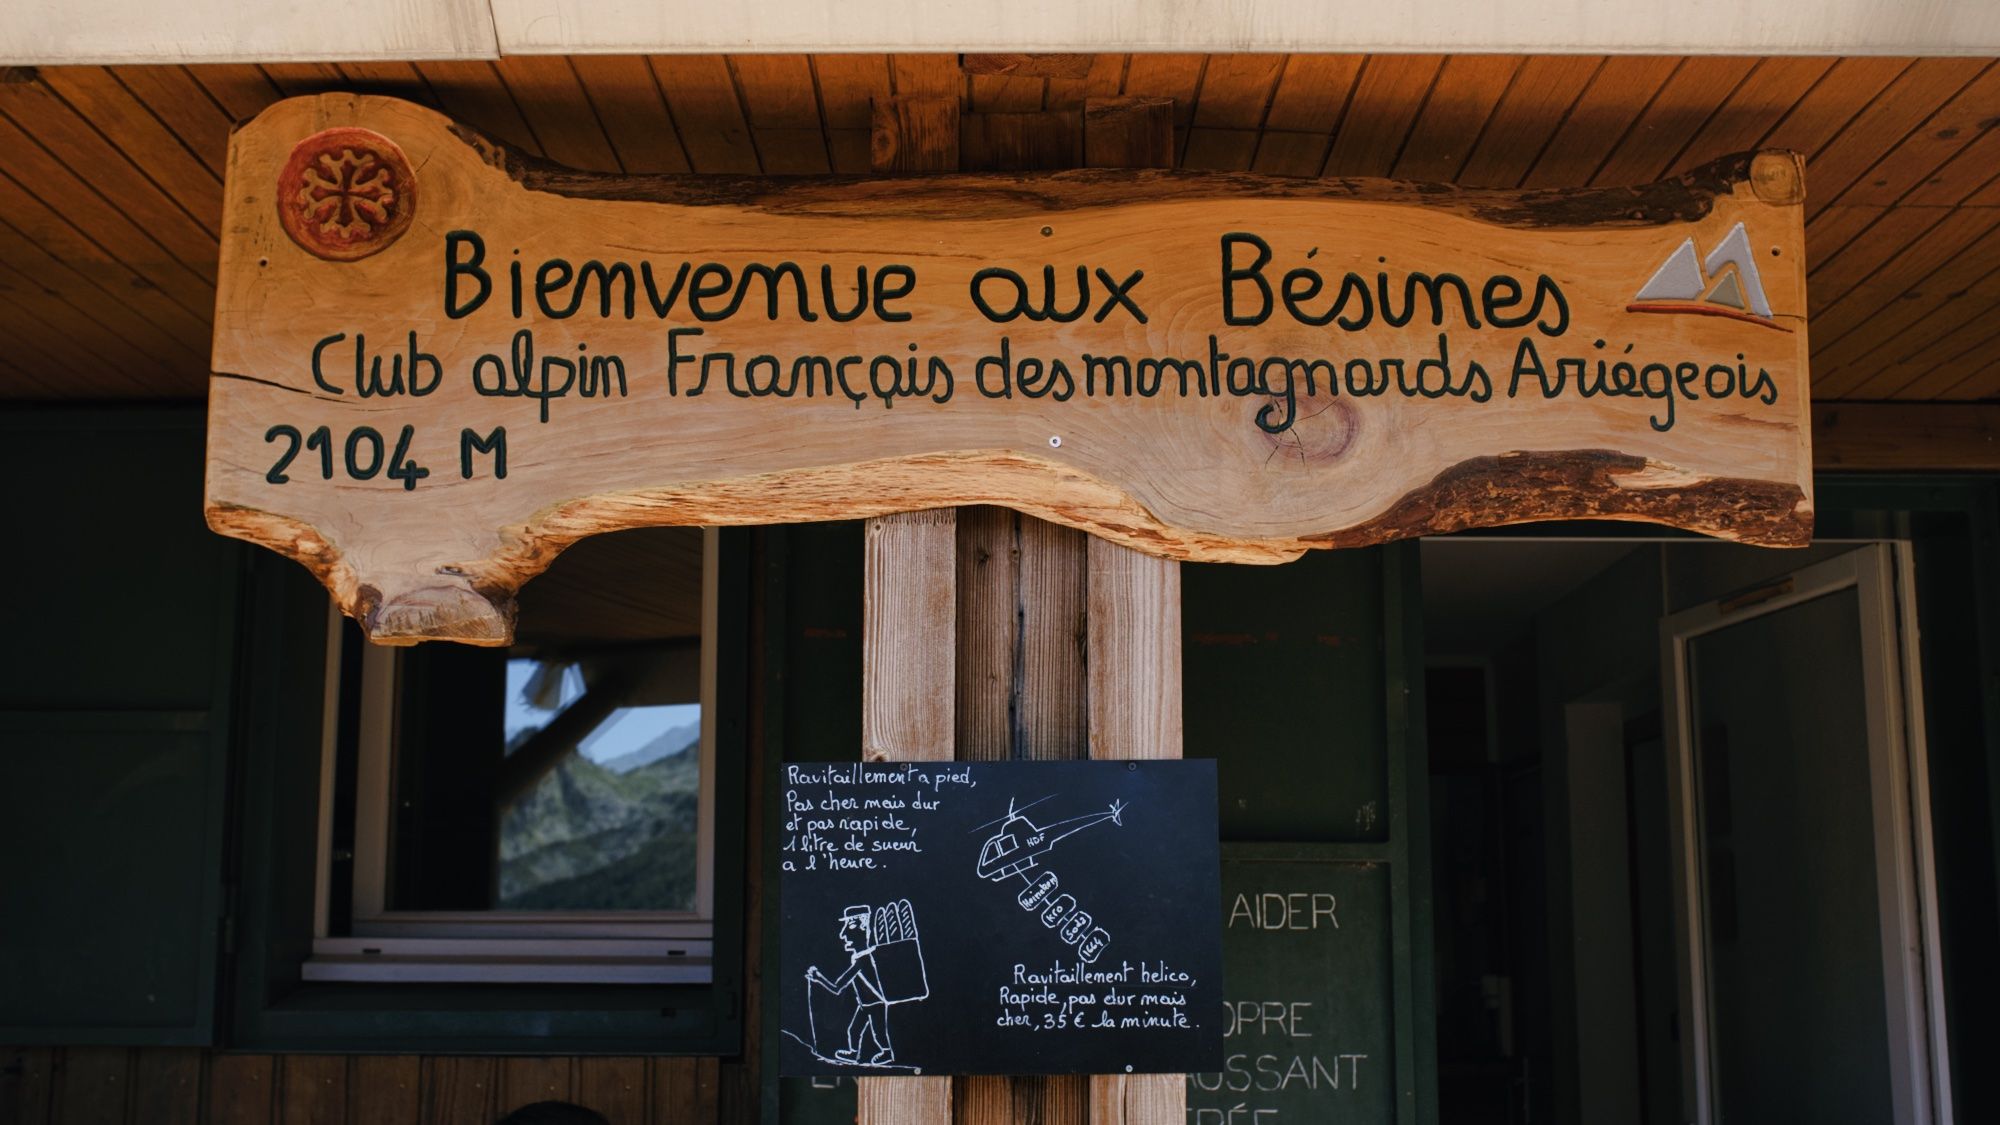 Bienvenue aux Bésines
Club alpin Français des montagnards Ariégeois
2104 M
Ravitaillement a pied,
Pas cher mais dur
et pas rapide,
1 litre de sueur
a l'heure.
HDF
Heineken
Kro
Soda
1664
Ravitaillement helico,
Rapide, pas dur mais
cher, 35 € la minute.
AIDER
OPRE
AUSSANT